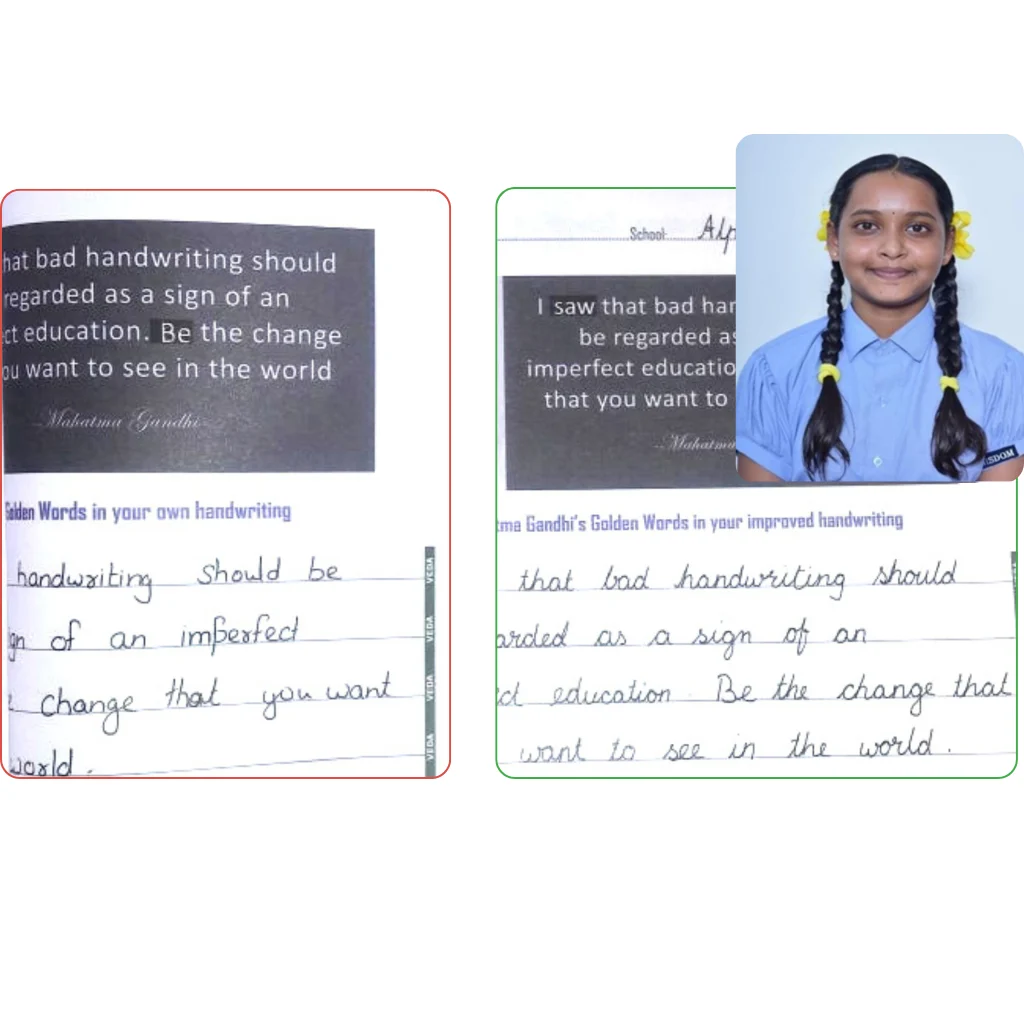 hat bad handwriting should
regarded as a sign of an
ct education. Be the change
ou want to see in the world
--Mahatma Gandhi--
Golden Words in your own handwriting
handwriting should be
gn of an imperfect
change that you want
world.
VEDA
VEDA
VEDA
VEDA
School: Alp
I saw that bad han
be regarded as
imperfect educatio
that you want to
--Mahatma
tma Gandhi's Golden Words in your improved handwriting
that bad handwriting should
arded as a sign of an
ct education. Be the change that
want to see in the world.
SDOM